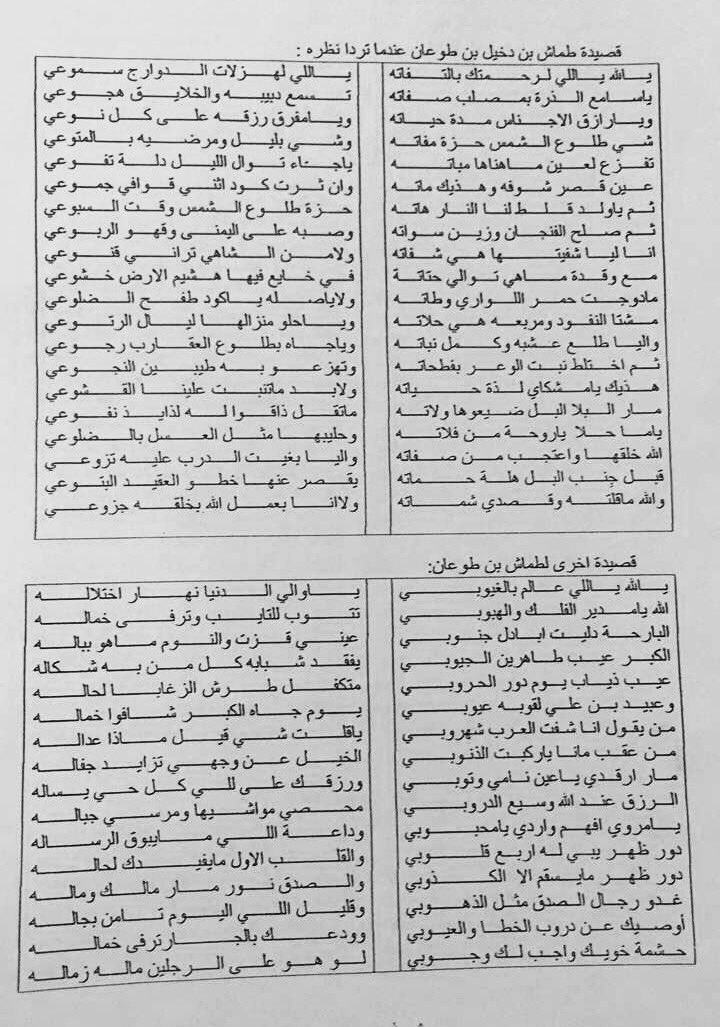 قصيدة طماش بن دخيل بن طوعان عندما تردا نظره :
يالله ياللي لرحمتك بالتفاته ياللي لهزلات الدوارج سموعي
ياسامع الذرة بمصلب صفاته تسمع دبيبه والخلايق هجوعي
ويارازق الاجناس مدة حياته ويامفرق رزقه على كل نوعي
شي طلوع الشمس حزة مفاته وشي بليل ومرضيه بالمتوعي
تفزع لعين ماهناها مباته ياجناء توال الليل دلة تفوعي
عين قصر شوفه وهذيك ماته وان ثرت كود اثني قوافي جموعي
ثم ياولد قلط لنا النار هاته حزة طلوع الشمس وقت السبوعي
ثم صلح الفنجان وزين سواته وصبه على اليمنى وقهو الربوعي
انا ليا شفيتها هي شفاته ولامن الشاهي تراني قنوعي
مع وقدة ماهي توالي حتاتة في خايع فيها هشيم الارض خشوعي
مادوجت حمر اللواري وطاته ولاياصله ياكود طفح الضلوعي
مشتا النفود ومربعه هي حلاته وياحلو منزالها ليال الرتوعي
واليا طلع عشبه وكمل نباته وياجاه بطلوع العقارب رجوعي
ثم اختلط نبت الوعر بفطحاته وتهزعو به طيبين النجوعي
هذيك يامشكاي لذة حياته ولابد ماتنبت علينا القشوعي
مار البلا البل ضيعوها ولاته ماتقل ذاقوا له لذايذ نفوعي
ياما حلا ياروحة من فلاته وحليبها مثل العسل بالضلوعي
الله خلقها واعتجب من صفاته واليا بغيت الدرب عليه تزوعي
قبل جنب البل هلة حماته يقصر عنها خطو العقيد البتوعي
والله ماقلته وقصدي شماته ولاانا بعمل الله بخلقه جزوعي
قصيدة اخرى لطماش بن طوعان:
يالله ياللي عالم بالغيوبي ياوالي الدنيا نهار اختلاله
الله يامدير الفلك والهبوبي تتوب للتايب وترفى خماله
البارحة دليت ابادل جنوبي عيني قزت والنوم ماهو بباله
الكبر عيب طاهرين الجيوبي يفقد شبابه كل من به شكاله
عيب ذياب يوم دور الحروبي متكفل طرش الزغابا لحاله
وعبيد بن علي لقوبه عيوبي يوم جاه الكبر شافوا خماله
من يقول انا شفت العرب شهروبي ياقلت شي قيل ماذا عداله
من عقب مانا ياركبت الذنوبي الخيل عن وجهي تزايد جفاله
مار ارقدي ياعين نامي وتوبي ورزقك على للي كل حي يساله
الرزق عند الله وسيع الدروبي محصي مواشيها ومرسي جباله
يامروي افهم واردي يامحبوبي وداعة اللي مايبوق الرساله
دور ظهر يبي له اربع قلوبي والقلب الاول مايفيدك لحاله
دور ظهر مايسقم الا الكذوبي والصدق نور مار مالك وماله
غدو رجال الصدق مثل الذهوبي وقليل اللي اليوم تامن بجاله
أوصيك عن دروب الخطا والعيوبي وودعك بالجار ترفى خماله
حشمة خويك واجب لك وجوبي لو هو على الرجلين ماله زماله